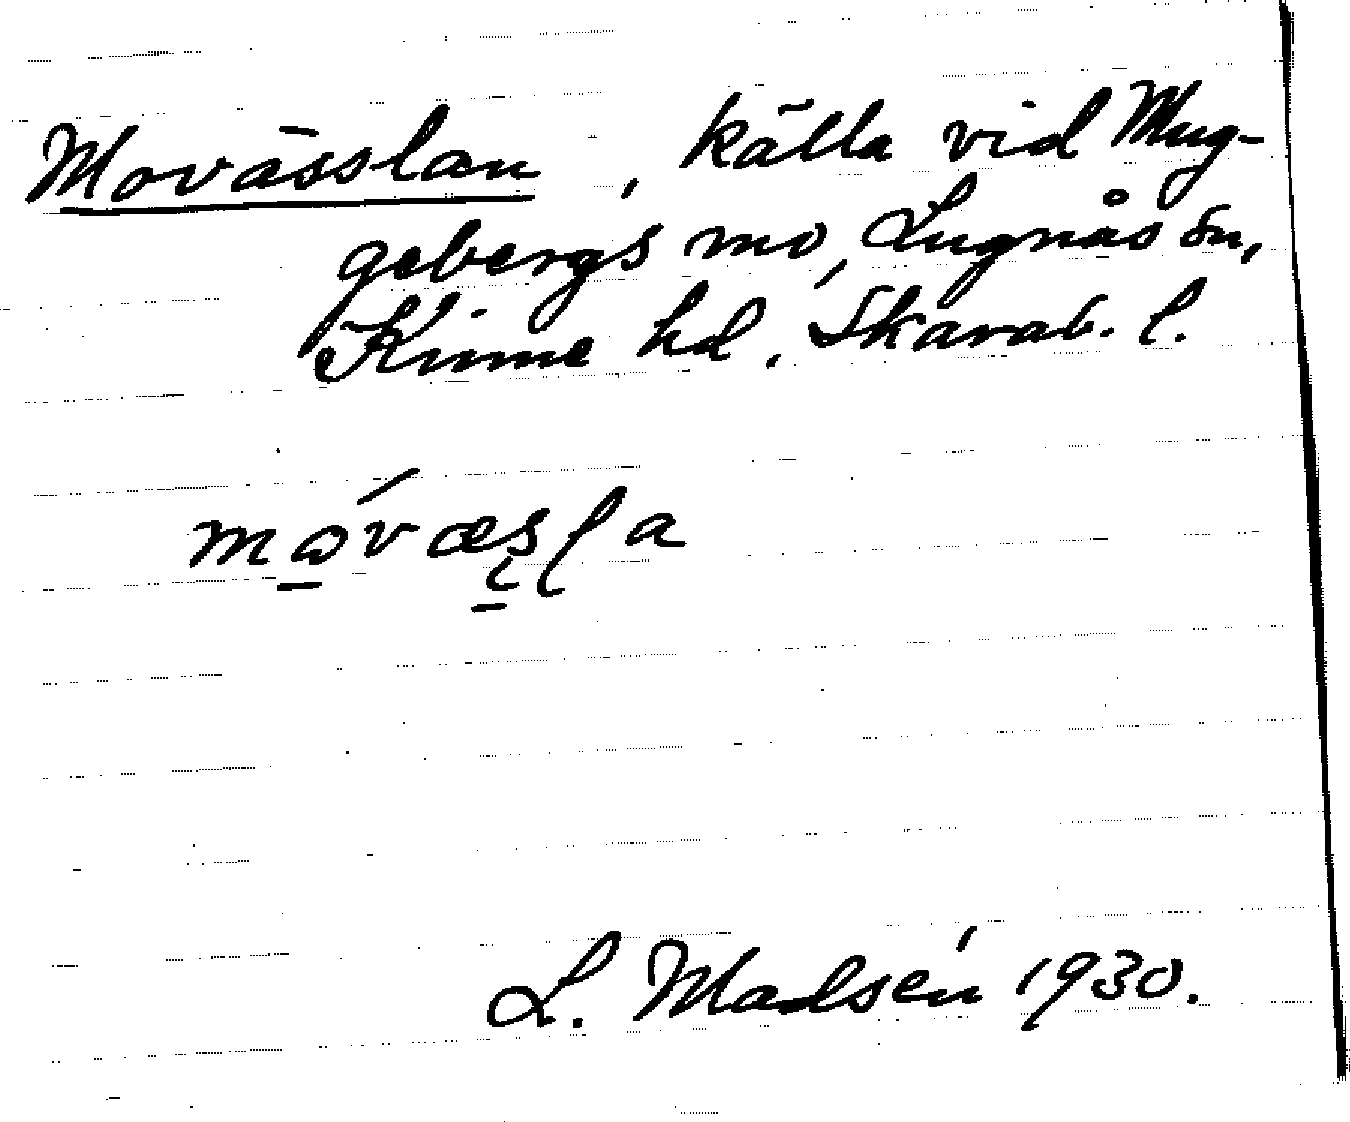 Movässlan, källa vid Mug-
gebergs mo, Lugnås sn,
Kinne hd, Skarab. l.
L. Madsén 1930.